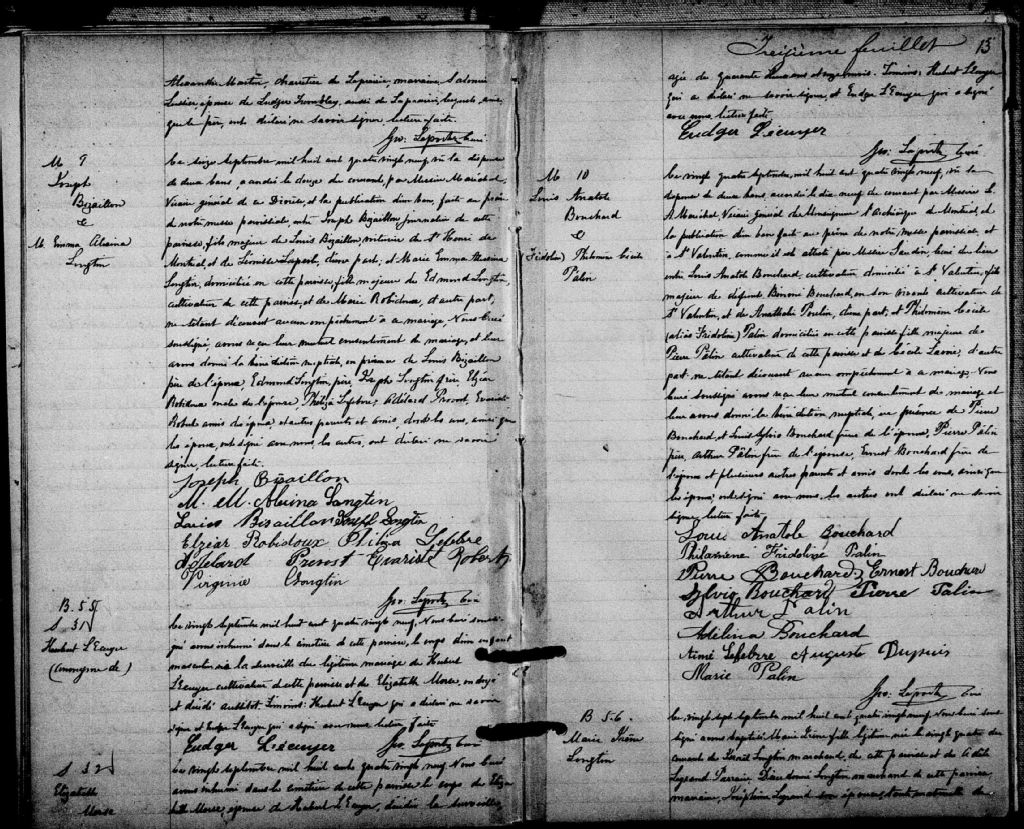 Alexandre Martin, charretier de Laprairie, marraine Salomée
Lussier, épouse de Ludger Tremblay, aussi de Laprairie, lesquels, ainsi
que le père, ont déclaré ne savoir signer. Lecture faite.
Jos. Laporte curé
M 9
Joseph
Bizaillon
&
M Emma Alvina
Longtin
Le seize Septembre mil huit cent quatre vingt neuf, vu la dispense
de deux bans, accordée le douze du courant, par Messire Maréchal,
Vicaire général de ce Diocèse, et la publication d'un ban, faite au prône
de notre messe paroissiale, entre Joseph Bizaillon journalier de cette
paroisse, fils majeur de Louis Bizaillon, de St Henri de
Montréal, et de d'une part, et Marie Emma
Longtin, domiciliée en cette paroisse, fille majeure de Edmond Longtin,
cultivateur de cette paroisse, et de Marie Robidoux, d'autre part,
ne s'étant découvert aucun empêchement à ce mariage, Nous Curé
soussigné, avons reçu leur mutuel consentement de mariage, et leur
avons donné la bénédiction nuptiale, en présence de Louis Bizaillon
père de l'époux, Edmond Longtin, père, Joseph Longtin frère, Elzéar
Robidoux oncle de l'épouse, Philiza Lefebvre, Adélard Provost, Evariste
Robert amis des époux et autres parents et amis, dont les uns, ainsi que
les époux, ont signé avec nous, les autres, ont déclaré ne savoir
signer, lecture faite.
Joseph Bisaillon
M. M. Alvina Longtin
Louis Bisaillon Joseph Longtin
Elzéar Robidoux Philiza Lefebvre
Adelard Provost Evariste Robert
Virginie Longtin
Jos. Laporte curé
B. 55
S 31
Hubert L'Ecuyer
(anonyme de)
Le vingt Septembre mil huit cent quatre vingt neuf, Nous curé soussi-
gné avons inhumé dans le cimetière de cette paroisse, le corps d'un enfant
masculin né la surveille du légitime mariage de Hubert
L'Ecuyer cultivateur de cette paroisse et de Elizabeth Morse, ondoyé
et décédé aussitôt. Témoins: Hubert L'Ecuyer qui a déclaré ne savoir
signer et Eudger L'Ecuyer qui a signé avec nous lecture faite
Eudger Lécuyer Jos. Laporte curé
S 32
Elizabeth
Morse
Le vingt Septembre mil huit cent quatre vingt neuf Nous curé
avons inhumé dans le cimetière de cette paroisse le corps de Eliza
beth Morse, épouse de Hubert L'Ecuyer, décédée la surveille
Treizième feuillet 13
agée de quarante ans et onze mois. Témoins: Hubert L'Ecuyer
qui a déclaré ne savoir signer, et Eudger L'Ecuyer qui a signé
avec nous, lecture faite
Eudger Lécuyer
Jos. Laporte curé
M 10
Louis Anatole
Bouchard
&
(Fridoline) Philomène Cécile
Palin
Le vingt quatre Septembre, mil huit cent quatre vingt neuf, vu la
dispense de deux bans, accordée le dix neuf du courant par Messire L.
Maréchal Vicaire Général de Monseigneur l'Archevêque de Montréal, et
la publication d'un ban faite au prône de notre messe paroissiale, et
à St Valentin, comme il est attesté par Messire curé du lieu
entre Louis Anatole Bouchard, cultivateur, domicilié à St Valentin, fils
majeur de défunt Bénoni Bouchard, en son vivant cultivateur de
St Valentin, et de Anathalie Poulin, d'une part, et Philomène Cécile
(alias Fridoline) Palin domiciliée en cette paroisse, fille majeure de
Pierre Palin cultivateur de cette paroisse et de Cécile d'autre
part ne s'étant découvert aucun empêchement à ce mariage. Nous
curé soussigné avons reçu leur mutuel consentement de mariage et
leur avons donné la bénédiction nuptiale, en présence de Pierre
Bouchard, et Louis Sylvio Bouchard frères de l'époux, Pierre Palin
père, Arthur Palin frère de l'épouse, Ernest Bouchard frère de
l'époux et plusieurs autres parents et amis dont les uns, ainsi que
les époux, ont signé avec nous, les autres ont déclaré ne savoir
signer, lecture faite.
Louis Anatole Bouchard
Philomène Fridoline Palin
Pierre Bouchard, Ernest Bouchard
Sylvio Bouchard Pierre Palin
Arthur Palin
Adélina Bouchard
Aimé Lefebvre Auguste Dupuis
Marie Palin
Jos. Laporte curé
B 56
Marie
Longtin
Le vingt sept Septembre mil huit cent quatre vingt neuf, Nous curé sous-
signé avons baptisé Marie fille légitime née le vingt quatre du
courant de Longtin marchand, de cette paroisse et de
Legrand. Parrain, Dieudonné Longtin marchand de cette paroisse
marraine, Joséphine Legrand son épouse, tante maternelle de